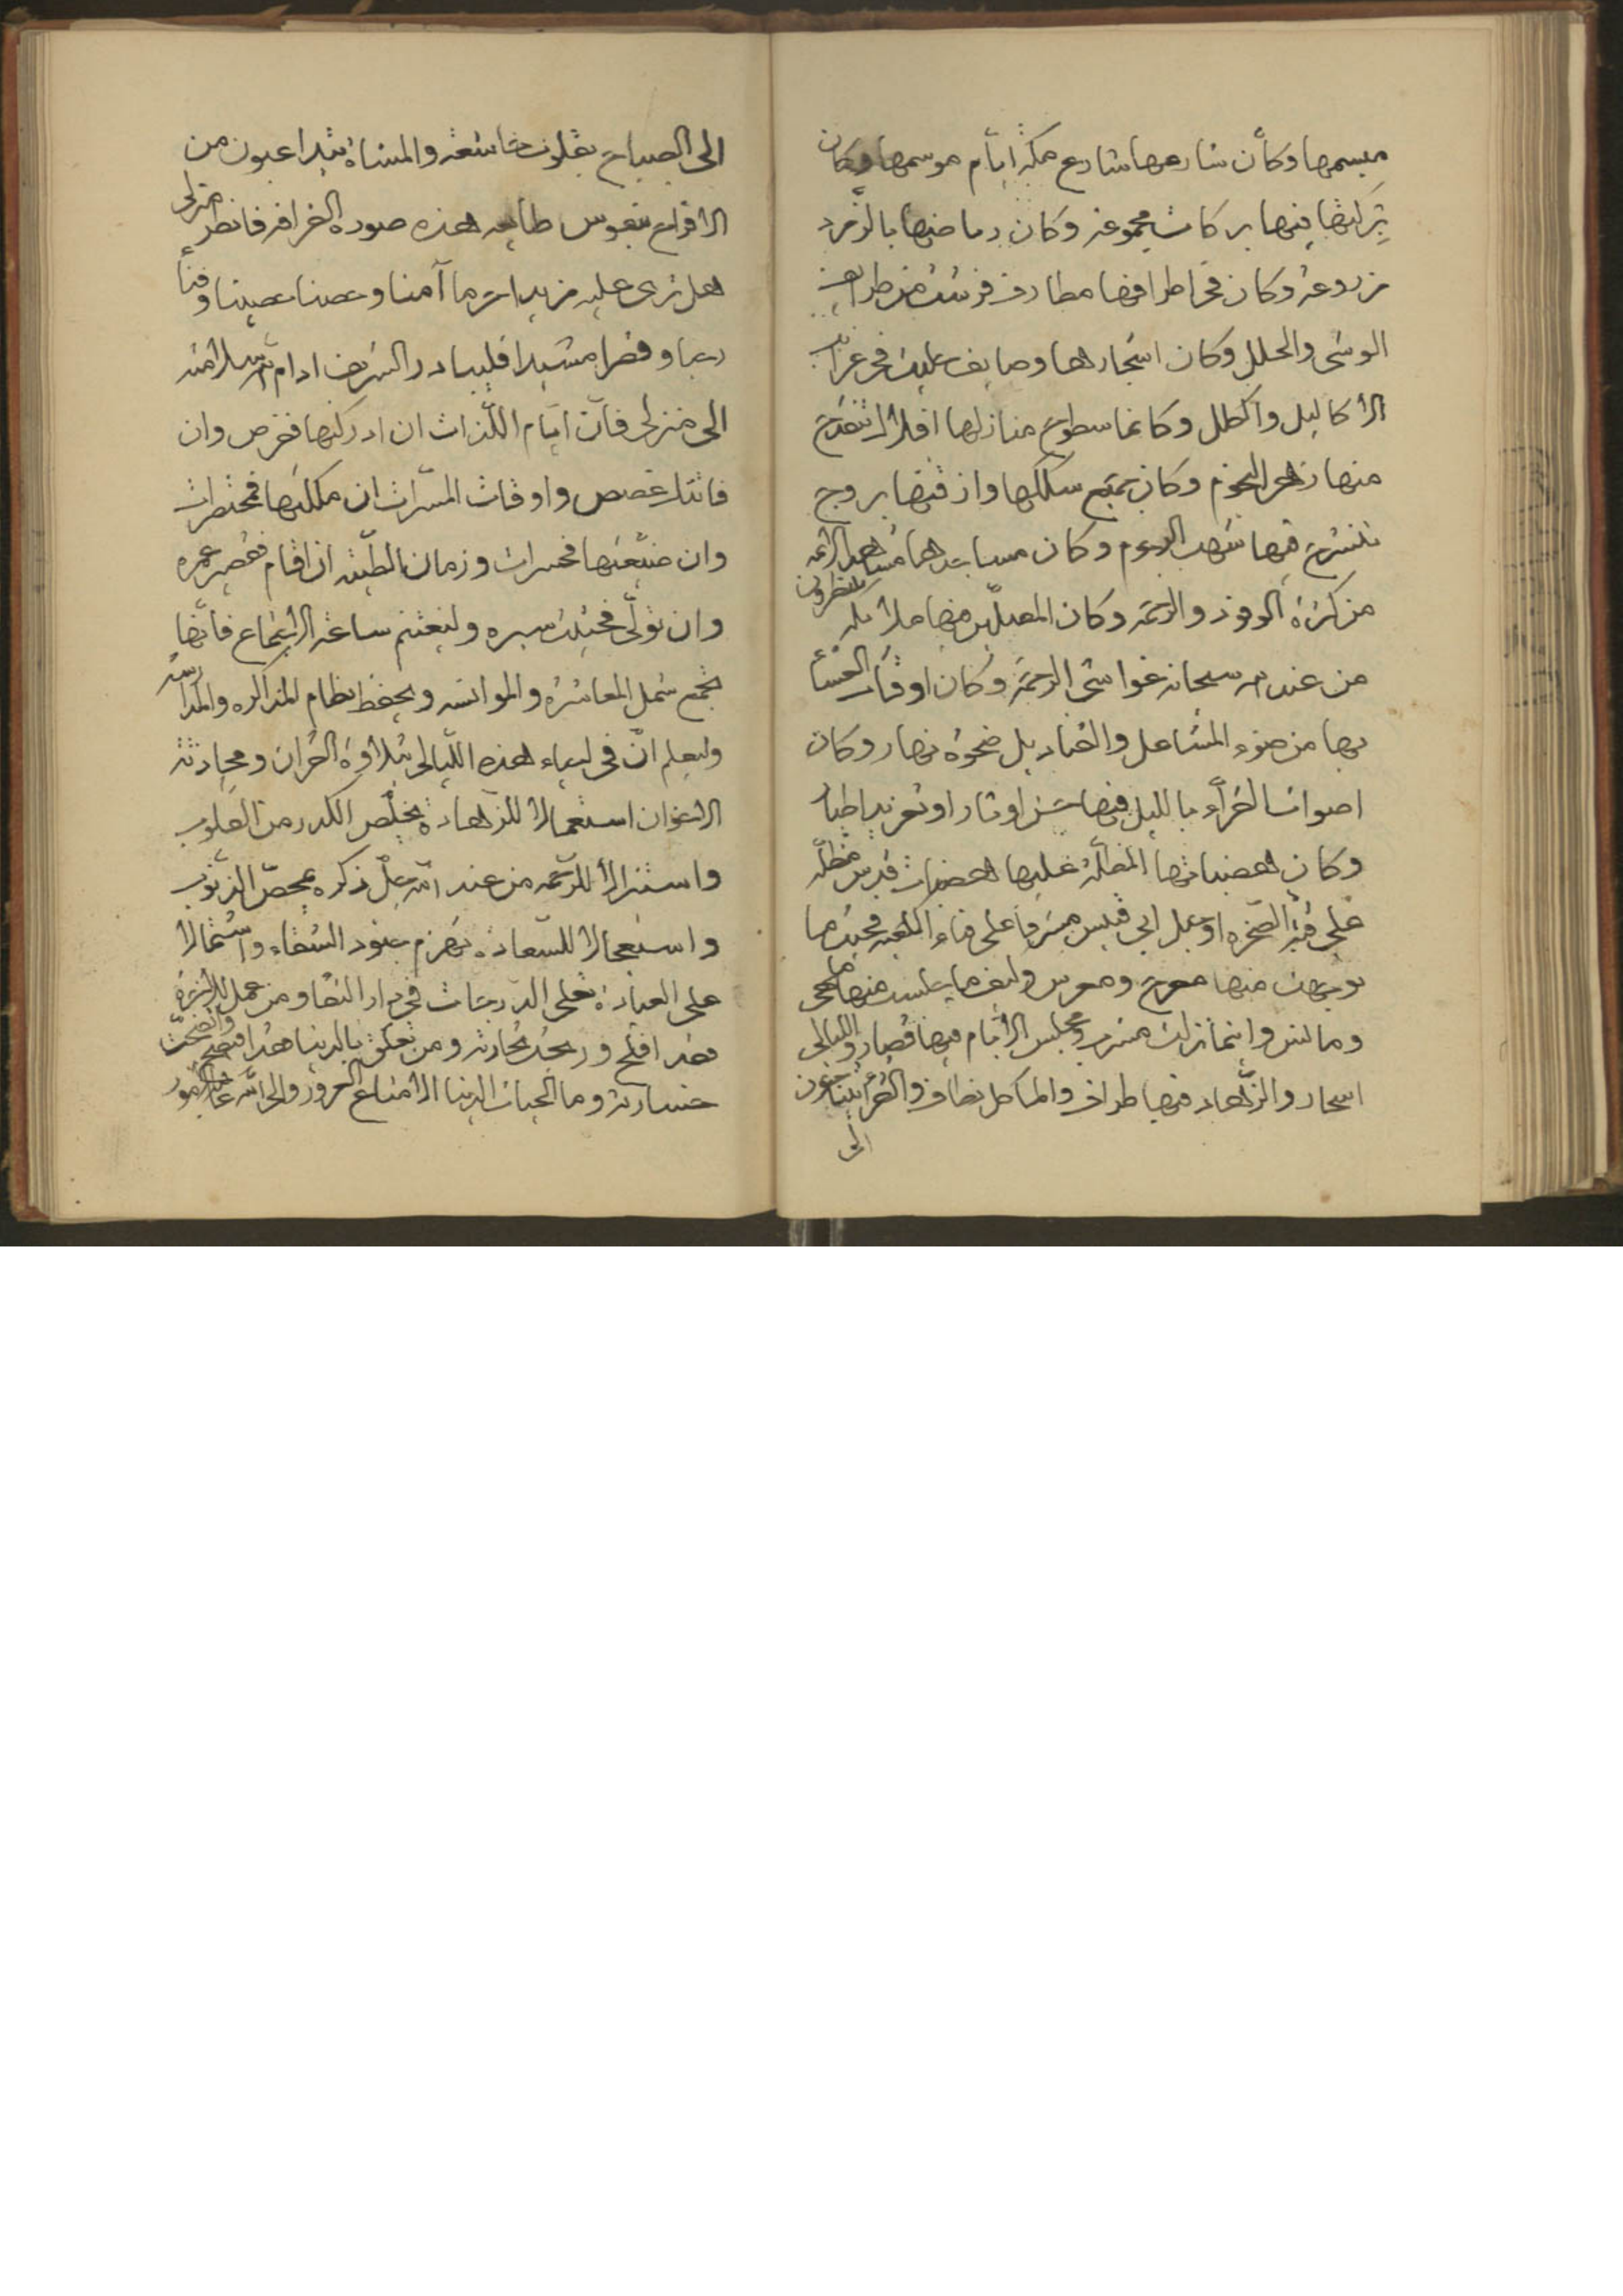 ميسمها وكأن شارعها شارع مكة ايام موسمها وكان
بركتها فيها بركات مجموعة وكان رياضها بالزمرد
مزروعة وكان في اطرافها مطارف فرشت من طرائف
الوشى والحلل وكان اشجارها وصايف جليت في غرايب
الاكاليل والكلل وكانما سطوح منازلها افلاك تنقدح
منها زهر النجوم وكان جميع سككها وازقتها بروج
تنسرح فيها شهب الرجوم وكان مساجدها مشاهد الائمة
من كثرة الوفود والرحمة وكان المصلين فيها ملائكة ينتظرون
من عند الله سبحانه غواشى الرحمة وكان اوقات العشاء
بها من ضوء المشاعل والقناديل ضحوة نهار وكان
اصوات القراء بالليل فيها اوتار او تغريد اطيار
وكان هضباتها المطلة عليها هضبات قدس مطلة
على قبة الصخرة او جبل ابي قبيس مشرفا على فناء الكعبة فحيثما
توجهت منها معرج ومعرس وكيف ما جلست منها ملهى
ومانس واينما نزلت منها مشرب ومجلس الايام فيها قصار والليالى
اسحار والزهاد فيها طراف والماكل نظاف والقراء يتناغون
الى
الى الصباح بقلوب خاشعة والمشاة بيد اعيون من
الاقداح بنفوس طايعة هذه صورة القرافة فانظر منزلى
هل ترى عليه مزيدا حرما آمنا وحصنا حصينا وفناء
رحبا وقصرا مشيدا فليبادر الشريف ادام الله سلامته
الى منزلى فان ايام اللذات ان ادركتها ففرص وان
فاتتك فغصص واوقات المسرات ان ملكتها فخطرات
وان ضيعتها فحسرات وزمان الطيبة ان اقام فقصير عمره
وان تولى فحثيث سيره وليغتنم ساعة الاجتماع فانها
تجمع شمل المعاشرة والموانسة ويحفظ نظام المذاكرة والمدارسة
وليعلم ان في احياء هذه الليالى بتلاوة القران ومحادثة
الاخوان استعمالا للزهادة يخلص الكدر من القلوب
واستنزالا للرحمة من عند الله جل ذكره يمحص الذنوب
واستعجالا للسعادة تهزم جنود الشقاء واشتمالا
على العبادة تعلى الدرجات في دار البقا ومن عمل للاخرة
فقد افلح وربحت تجارته ومن تعلق بالدنيا فقد افتضح واتضحت
خسارته وما الحيات الدنيا الا متاع الغرور والى الله عاقبة الامور